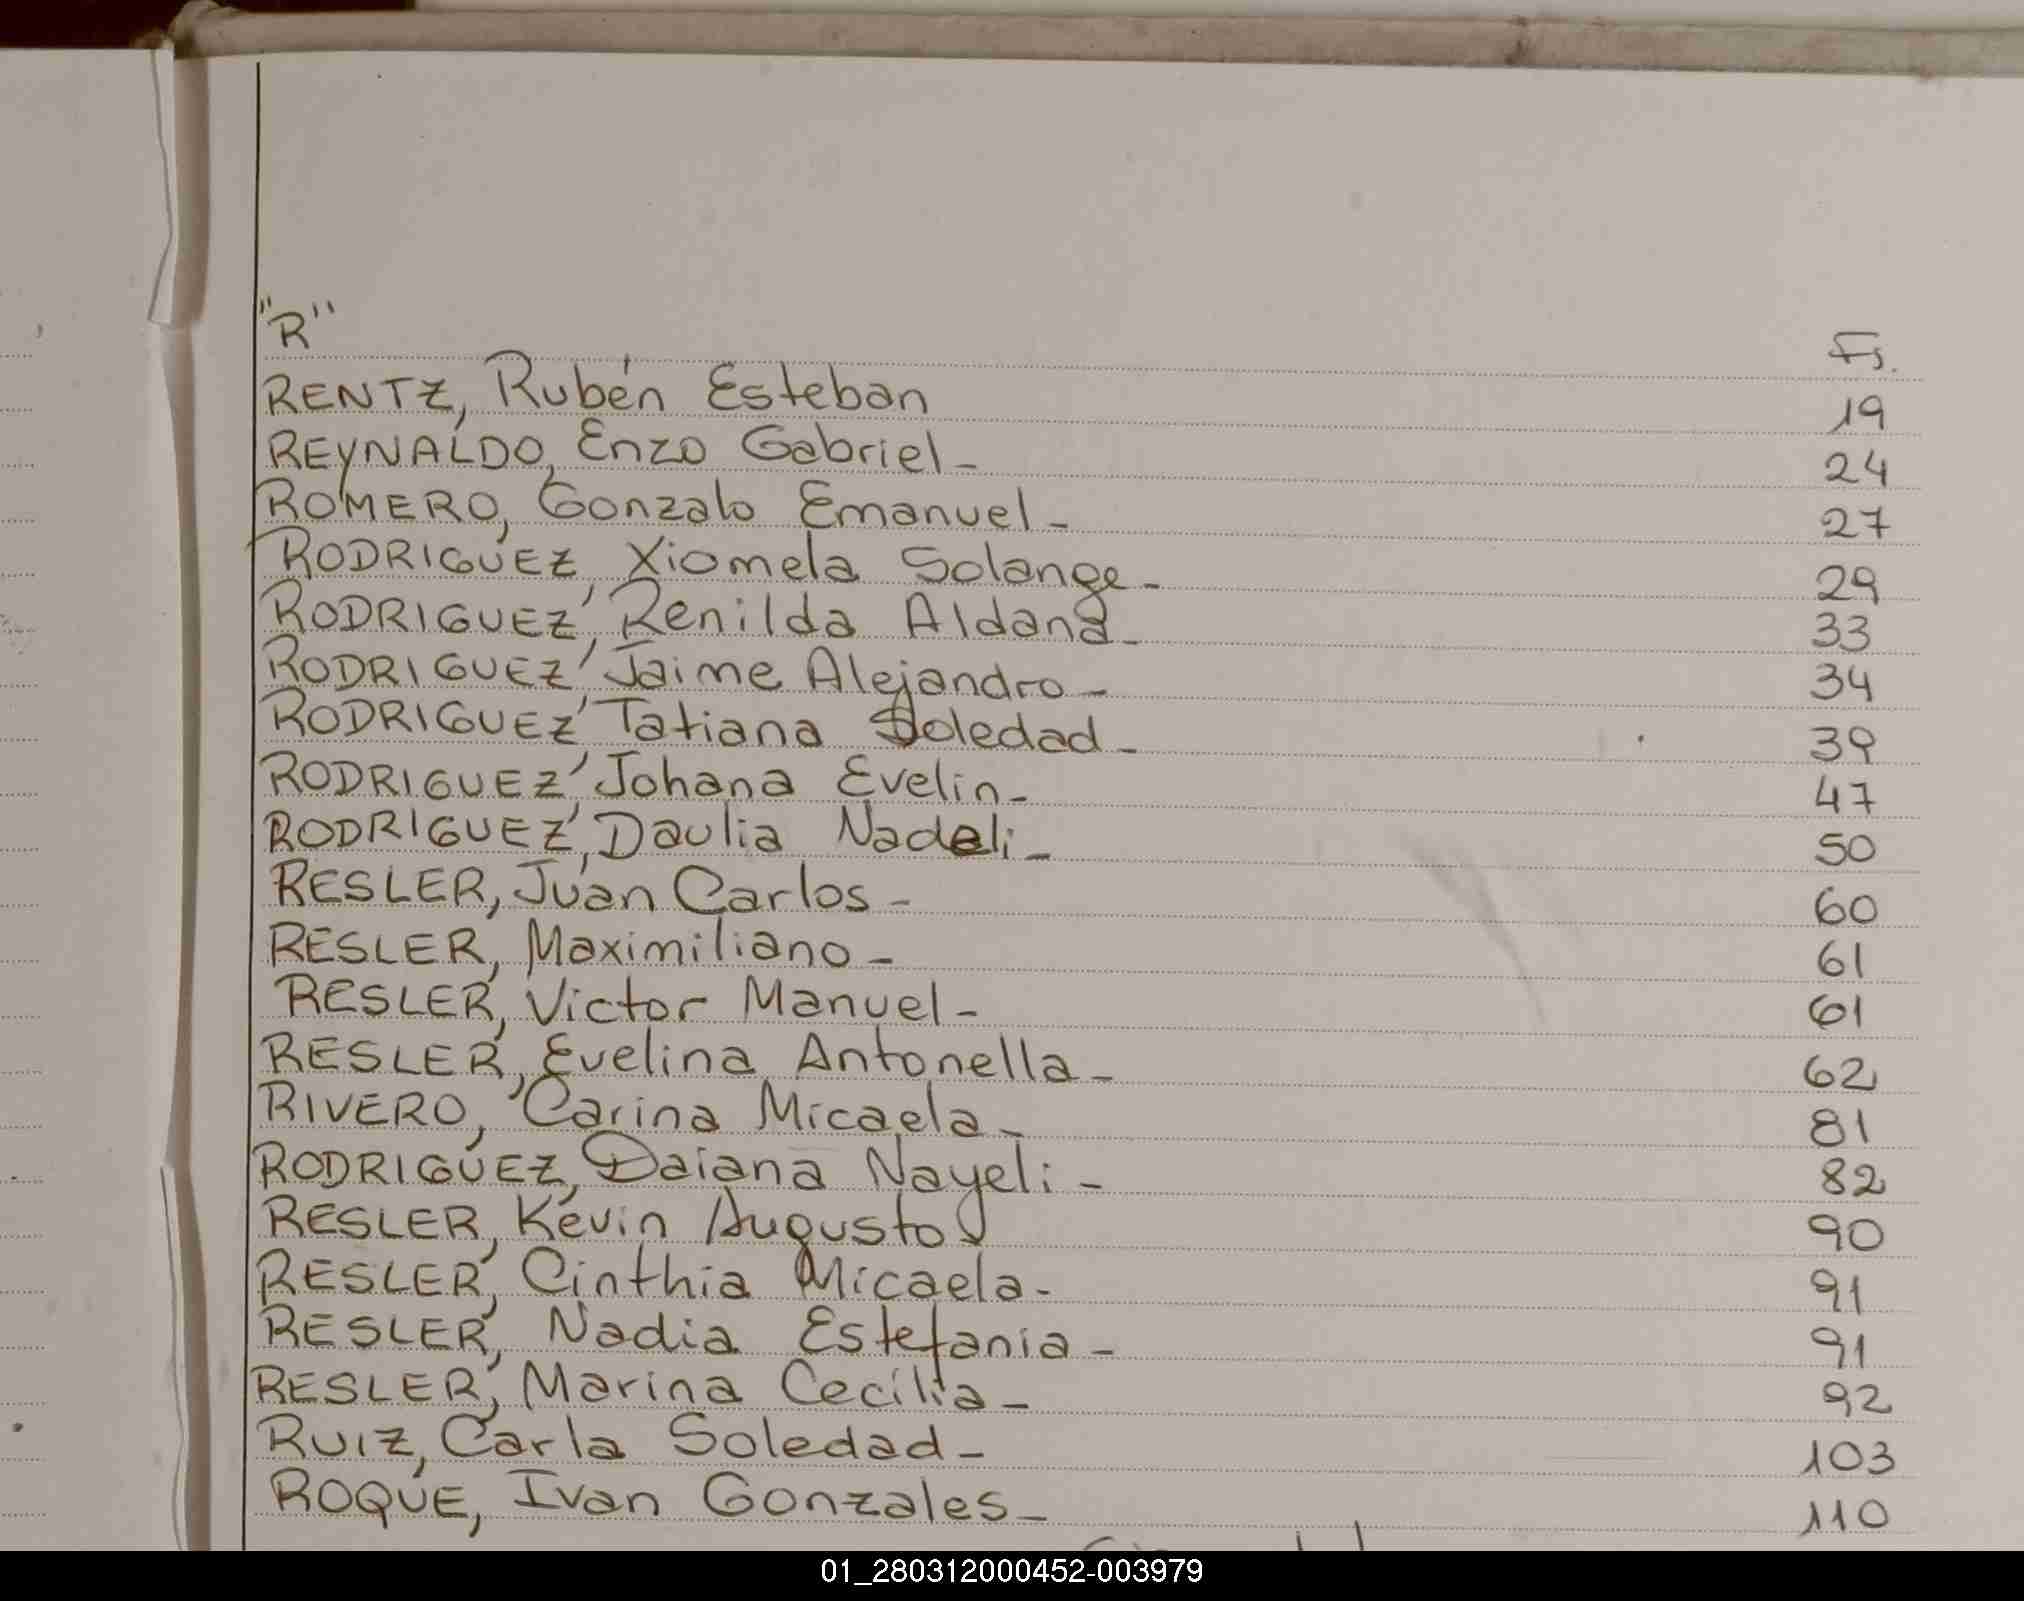 "R"
Fs.
RENTZ, Rubén Esteban 19
REYNALDO, Enzo Gabriel - 24
ROMERO, Gonzalo Emanuel - 27
RODRIGUEZ, Xiomela Solange - 29
RODRIGUEZ, Renilda Aldana - 33
RODRIGUEZ, Jaime Alejandro - 34
RODRIGUEZ, Tatiana Soledad - 39
RODRIGUEZ, Johana Evelin - 47
RODRIGUEZ, Daulia Nadeli - 50
RESLER, Juan Carlos - 60
RESLER, Maximiliano - 61
RESLER, Victor Manuel - 61
RESLER, Evelina Antonella - 62
RIVERO, Carina Micaela - 81
RODRIGUEZ, Daiana Nayeli - 82
RESLER, Kevin Augusto 90
RESLER, Cinthia Micaela - 91
RESLER, Nadia Estefania - 91
RESLER, Marina Cecilia - 92
RUIZ, Carla Soledad - 103
ROQUE, Ivan Gonzales - 110
01_280312000452-003979